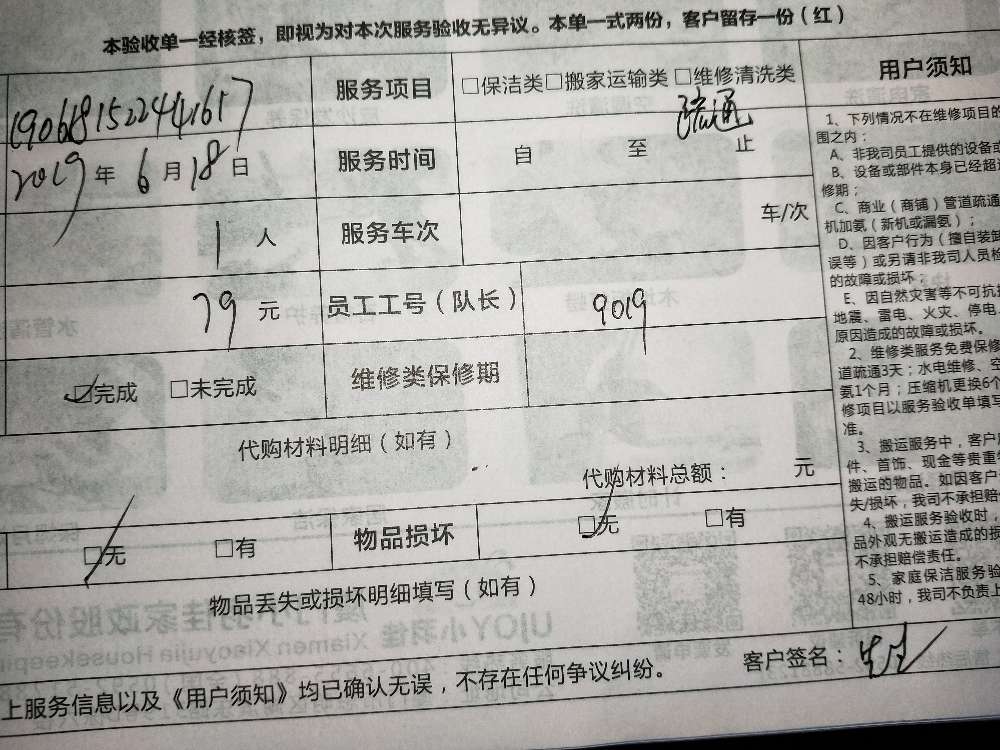 本验收单一经核签，即视为对本次服务验收无异议。本单一式两份，客户留存一份（红）
服务项目 □保洁类□搬家运输类 □维修清洗类
疏通
2019年6月18日 服务时间 自 至 止
1人 服务车次 车/次
79元 员工工号（队长） 9019
☑完成 □未完成 维修类保修期
代购材料明细（如有）
代购材料总额： 元
☑无 □有 物品损坏 ☑无 □有
物品丢失或损坏明细填写（如有）
上服务信息以及《用户须知》均已确认无误，不存在任何争议纠纷。 客户签名：
用户须知
1、下列情况不在维修项目的
围之内：
A、非我司员工提供的设备或
B、设备或部件本身已经超
修期；
C、商业（商铺）管道疏通
机加氨（新机或漏氨）；
D、因客户行为（擅自装卸
误等）或另请非我司人员检
的故障或损坏；
E、因自然灾害等不可抗
地震、雷电、火灾、停电
原因造成的故障或损坏。
2、维修类服务免费保修
道疏通3天；水电维修、空
氨1个月；压缩机更换6个
修项目以服务验收单填写
准。
3、搬运服务中，客户
件、首饰、现金等贵重
搬运的物品。如因客户
失/损坏，我司不承担赔
4、搬运服务验收时，
品外观无搬运造成的损
不承担赔偿责任。
5、家庭保洁服务验
48小时，我司不负责上